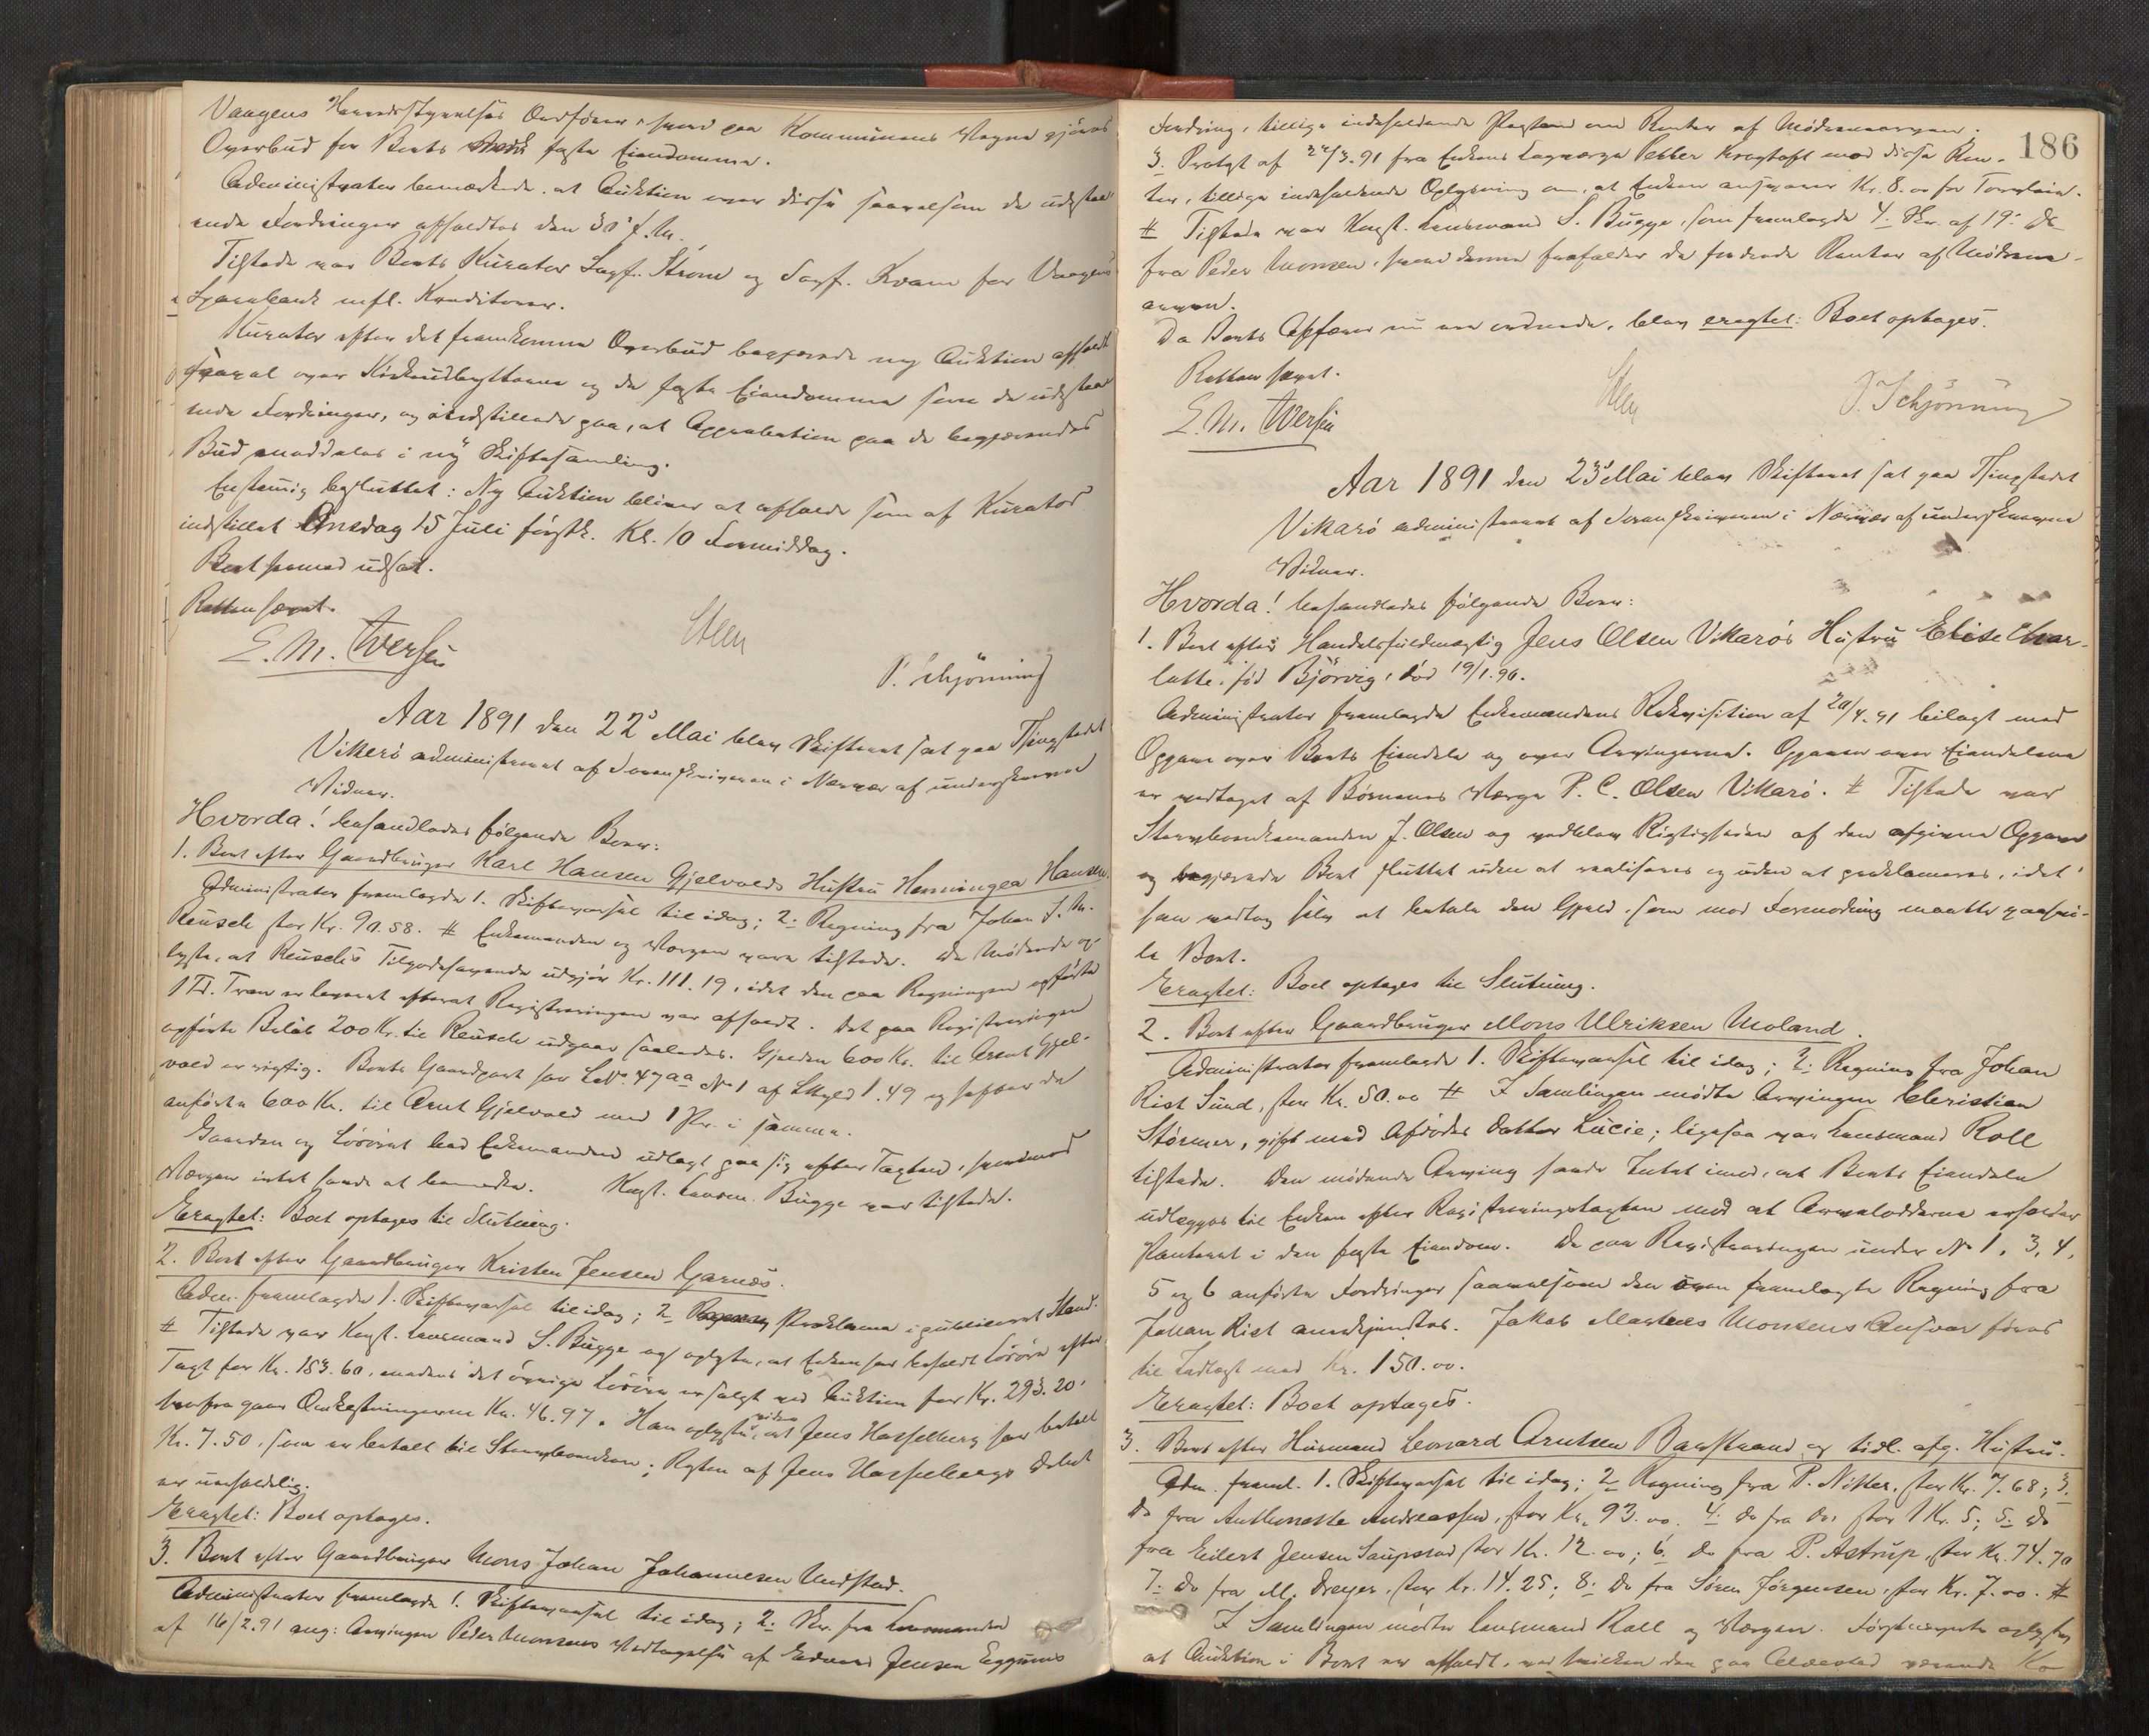 Vaagens Herredsstyrelses Ordfører, hvori paa Kommunens Vegne gjøres
Overbud for Boets faste Eiendomme.
Administrator bemærkede, at Auktion over disse saavelsom de udstaa
ende Fordringer afholdtes den 30' f.M.
Tilstede var Boets Kurator Sagf. Strøm og Sagf. Kvam for Vaagens
Sparebank mfl. Kreditorer.
Kurator efter det fremkomne Overbud begjærede ny Auktion afholdt
saavel over Fiskeudbyttet og de faste Eiendomme som de udstaa
ende Fordringer, og indstillede paa, at Approbation paa de begjærendes
Bud meddeles i ny Skiftesamling.
Enstemig besluttet: Ny Auktion bliver at afholde som af Kurator
indstillet Onsdag 15 Juli førstk. Kl. 10 Formiddag.
Boet hermed udsat.
Retten hævet.
E. M. Iversen Steen
P. Schjønning
Aar 1891 den 22' Mai blev Skifteret sat paa Thingstedet
Vikerö administreret af Sorenskriveren i Nærvær af underskrevne
Vidner.
Hvorda! behandledes følgende Boer:
1. Boet efter Gaardbruger Karl Hansen Gjelvolds Hustru Henningea Hansen.
Administrator fremlagde 1. Skiftevarsel til idag; 2. Regning fra Johan J. M.
Reusch stor Kr. 90.58. # Enkemanden og Værgen vare tilstede. De Mødende op-
lyste, at Reusch's Tilgodehavende udgjør Kr. 111.19, idet den paa Regningen opførte
1 Td. Tran er leveret efterat Registreringen var afholdt. Det paa Registreringen
opførte Beløb 200 Kr. til Reusch udgaar saaledes. Gjælden 600 Kr. til Arent Gjel-
vold er rigtig. Boets Gaardpart har LNo. 47aa No 1 af Skyld 1.49 og hefter de
anførte 600 Kr. til Arnt Gjelvold med 1 Pr. i samme.
Gaarden og Løsøret bad Enkemanden udlagt paa sig efter Taxten, hvorimod
Værgen intet havde at bemærke. Kgst. Lensm. Bugge var tilstede.
Eragtet: Boet optages til Slutning.
2. Boet efter Gaardbruger Kristen Jensen Garnæs.
Adm. fremlagde 1. Skiftevarsel til idag; 2 Proklama i publiceret Stand.
# Tilstede var Kgst. Lensmand S. Bugge og oplyste, at Enken har beholdt Løsøre efter
Taxt for Kr. 183.60, medens det øvrige Løsøre er solgt ved Auktion for Kr. 293.20,
herfra gaar Omkostningerne Kr. 46.97. Han oplyste viden at Jens Hasselberg har betalt
Kr. 7.50, som er betalt til Stervboenken; Resten af Jens Hasselbergs Debet
er uerholdelig.
Eragtet: Boet optages.
3. Boet efter Gaardbruger Mons Johan Johannesen Undstad.
Administrator fremlagde 1. Skiftevarsel til idag; 2. Skr. fra Lensmanden
af 16/2.91 ang: Arvingen Peder Monsens Vedtagelse af Edvard Jensen Eggums
186
Fordring, tillige indeholdende Paastand om Renter af Mødrenearven.
3. Protest af 24/3.91 fra Enkens Lagværge Petter Kragtoft mod disse Ren-
ter, tillige indeholdende Oplysning om, at Enken ansvarer Kr. 8.00 for
# Tilstede var Kgst. Lensmand S. Bugge, som fremlagde 4. Skr. af 19. ds
fra Peder Monsen, hvori denne frafalder de fordrede Renter af Mødrene-
arven.
Da Boets Affærer nu ere ordnede, blev eragtet: Boet optages.
Retten hævet.
E. M. Iversen Steen P. Schjønning
Aar 1891 den 23' Mai blev Skifteret sat paa Thingstedet
Vikarö administreret af Sorenskriveren i Nærvær af underskrevne
Vidner.
Hvorda! behandledes følgende Boer:
1. Boet efter Handelsfuldmægtig Jens Olsen Vikarös Hustru Elise Char-
lotte, fød Björvig, død 19/1.90.
Administrator fremlagde Enkemandens Rekvisition af 20/4.91 bilagt med
Opgave over Boets Eiendele og over Arvingerne. Opgaven over Eiendelene
er vedtaget af Børnenes Værge P. C. Olsen Vikarö. # Tilstede var
Stervboenkemanden J. Olsen og vedblev Rigtigheden af den afgivne Opgave
og begjærede Boet sluttet uden at realiseres og uden at proklameres, idet
han vedtog selv at betale den Gjæld, som mod Formodning maatte paahvi-
le Boet.
Eragtet: Boet optages til Slutning.
2. Boet efter Gaardbruger Mons Ulriksen Moland.
Administrator fremlagde 1. Skiftevarsel til idag; 2. Regning fra Johan
Rist Sund, stor Kr. 50.00 # I Samlingen mødte Arvingen Christian
Størmer, gift med Afdødes Datter Lucie; ligesaa var Lensmand Roll
tilstede. Den mødende Arving havde Intet imod, at Boets Eiendele
udlægges til Enken efter Registreringstaxten mod at Arvelodderne erholder
Panteret i den faste Eiendom. De paa Registreringen under No 1, 3, 4,
5 og 6 anførte Fordringer saavelsom den fremlagte Regning fra
Johan Rist anerkjendtes. Jakob Martens Monsens Ansvar føres
til Indtægt med Kr. 150.00.
Eragtet: Boet optages.
3. Boet efter Husmand Leonard Arntsen Barstrand og tidl. afg. Hustru.
Adm. freml. 1. Skiftevarsel til idag; 2 Regning fra P. Nitter, stor Kr. 7.68; 3.
Do fra Anthonette Andreassen, stor Kr. 93.00. 4. do fra Do. stor Kr. 5; 5. do
fra Eilert Jensen Saupstad stor Kr. 12.00; 6. do fra P. Astrup, stor Kr. 74.70
7. do fra M. Dreyer, stor Kr. 14.25; 8. do fra Sören Jörgensen, stor Kr. 7.00. #
I Samlingen mødte Lensmand Roll og Værgen. Førstnævnte oplyste,
at Auktion i Boet er afholdt, ved hvilken den paa værende Ko